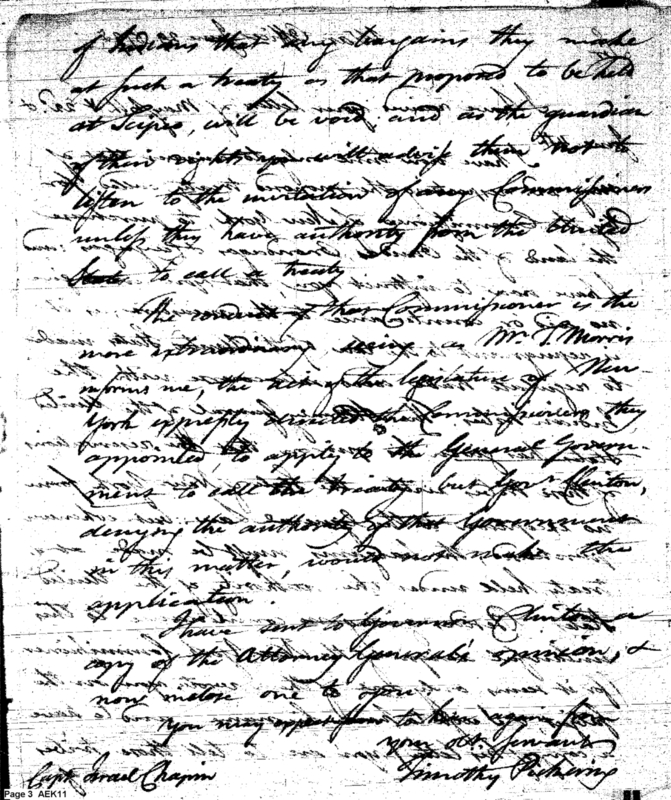 of Indians that any bargains they make
at such a treaty as that proposed to be held
at Scipio, will be void: and as the guardian
of their rights you will advise them not to
listen to the invitation of any Commissioners
unless they have authority from the United
States to call a treaty.
The conduct of that Commissioner is the
more extraordinary seeing as Mr. T. Morris
informs me, the act of the legislature of New
York expressly directed the Commissioners they
appointed, to apply to the General Govern-
ment to call the treaty; but Govr. Clinton,
denying the authority of that Government
in this matter, would not make the
application.
I have sent to Governor Clinton a
copy of the Attorney General's opinion, &
now inclose one to you.
You may expect to hear again from
your obt. servant
Timothy Pickering
Capt. Israel Chapin
Page 3 AEK11